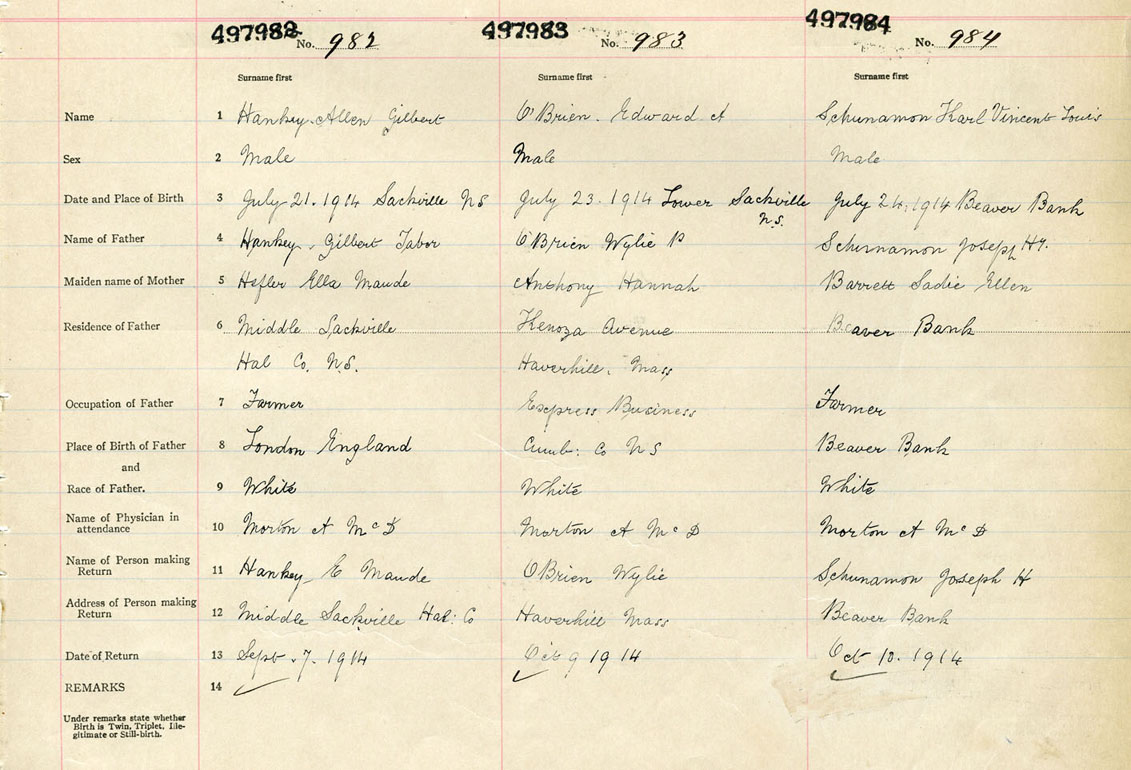 497982 No. 982 497983 No. 983 497984 No. 984
Surname first Surname first Surname first
Name 1 Hankey. Allen Gilbert O'Brien. Edward A Schunamon Karl Vincent Louis
Sex 2 Male Male Male
Date and Place of Birth 3 July 21. 1914 Sackville NS July 23. 1914 Lower Sackville N.S. July 24, 1914 Beaver Bank
Name of Father 4 Hankey. Gilbert Tabor O'Brien Wylie P Schunamon Joseph Hy.
Maiden name of Mother 5 Hefler Ella Maude Anthony Hannah Barrett Sadie Ellen
Residence of Father 6 Middle Sackville Kenoza Avenue Beaver Bank
Hal Co. N.S. Haverhill, Mass
Occupation of Father 7 Farmer Express Business Farmer
Place of Birth of Father 8 London England Cumb: Co NS Beaver Bank
and
Race of Father. 9 White White White
Name of Physician in
attendance 10 Morton A McD Morton A McD Morton A McD
Name of Person making
Return 11 Hankey E Maude O'Brien Wylie Schunamon Joseph H
Address of Person making
Return 12 Middle Sackville Hal: Co Haverhill Mass Beaver Bank
Date of Return 13 Sept. 7. 1914 Oct 9 1914 Oct 10. 1914
REMARKS 14
Under remarks state whether
Birth is Twin, Triplet, Ille-
gitimate or Still-birth.